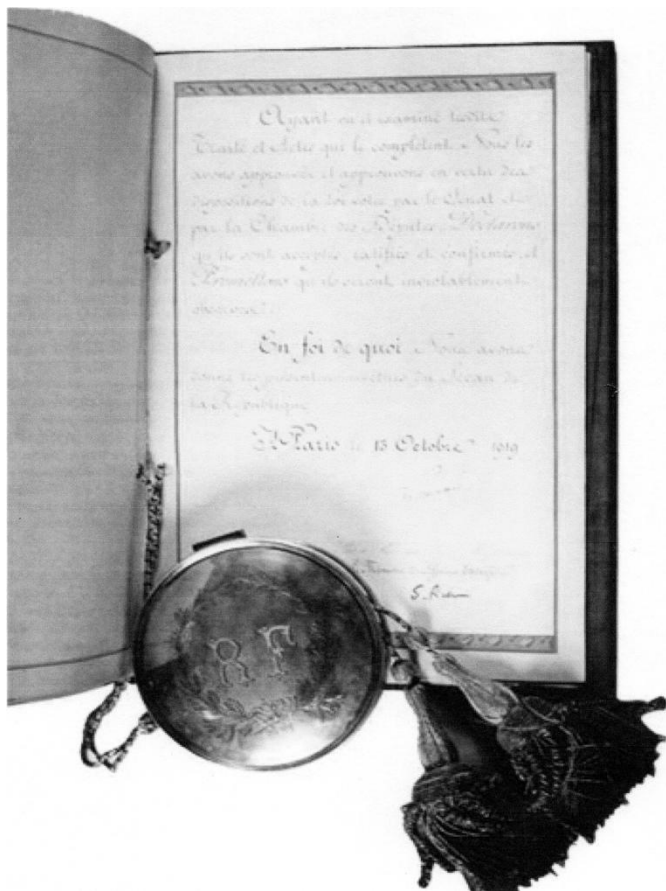 Ayant vu et examiné ledit
Traité et Actes qui le complètent Nous les
avons approuvés et approuvons en vertu des
dispositions de la loi votée par le Sénat et
par la Chambre des Députés, Déclarons
qu'ils sont acceptés, ratifiés et confirmés et
Promettons qu'ils seront inviolablement
observés.
En foi de quoi Nous avons
donné les présentes du Sceau de
la République
A Paris le 13 Octobre 1919
R F